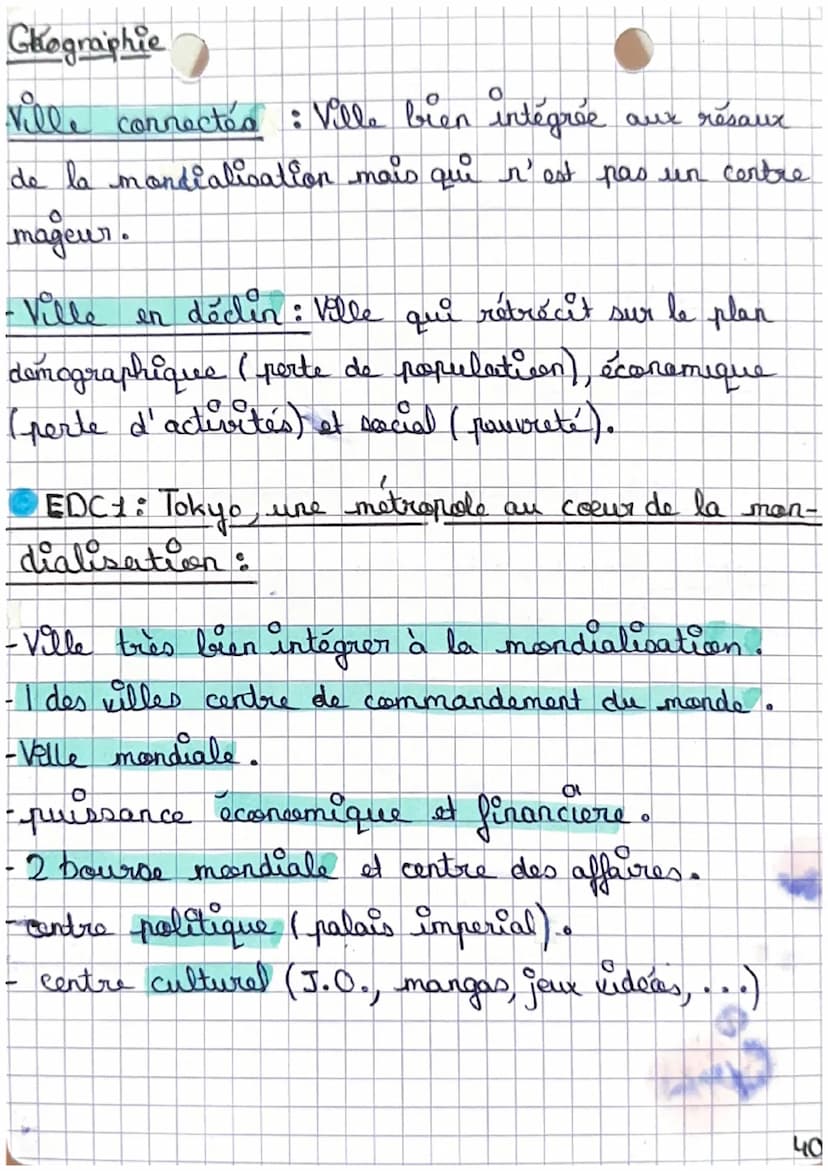 Géographie
Ville connectée : Ville bien intégrée aux résaux
de la mondialisation mais qui n'est pas un centre
mageur.
- Ville en déclin : Ville qui rétrécit sur le plan
démographique (perte de population), économique
(perte d'activités) et social (pauvreté).
EDC1 : Tokyo, une métropole au coeur de la mon-
dialisation :
- Ville très bien intégrer à la mondialisation.
- 1 des villes centre de commandement du monde.
- Ville mondiale.
- puissance économique et financière.
- 2 bourse mondiale et centre des affaires.
- centre politique (palais imperial).
- centre culturel (J.O., mangas, jeux vidéos, ...)
40